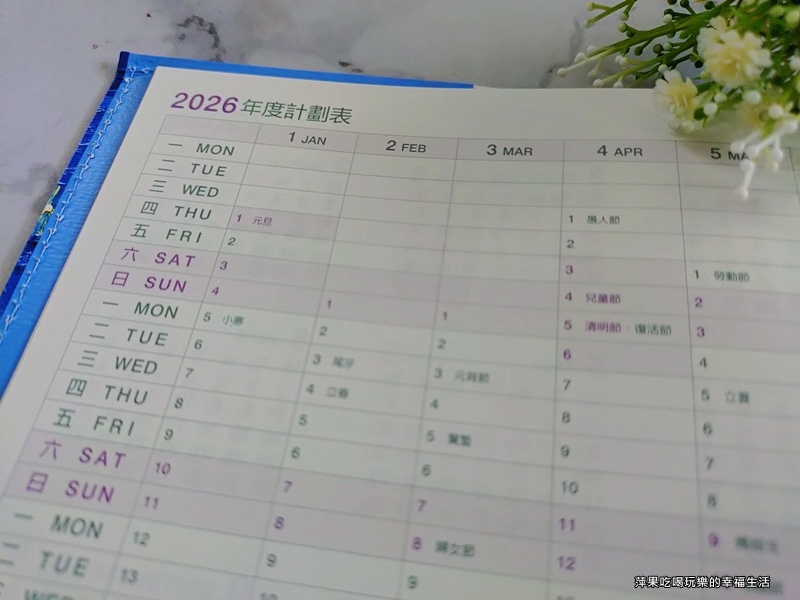 2026 年度計劃表
1 JAN 2 FEB 3 MAR 4 APR 5 MA
一 MON
二 TUE
三 WED
四 THU 1 元旦 1 愚人節
五 FRI 2 2 1 勞動節
六 SAT 3 3 2
日 SUN 4 1 1 4 兒童節 3
一 MON 5 小寒 2 2 5 清明節．復活節 4
二 TUE 6 3 尾牙 3 元宵節 6 5 立夏
三 WED 7 4 立春 4 7 6
四 THU 8 5 5 驚蟄 8 7
五 FRI 9 6 6 9 8
六 SAT 10 7 7 10 9
日 SUN 11 8 8 婦女節 11
一 MON 12 9 9 12
二 TUE 13 10
WED
萍果吃喝玩樂的幸福生活